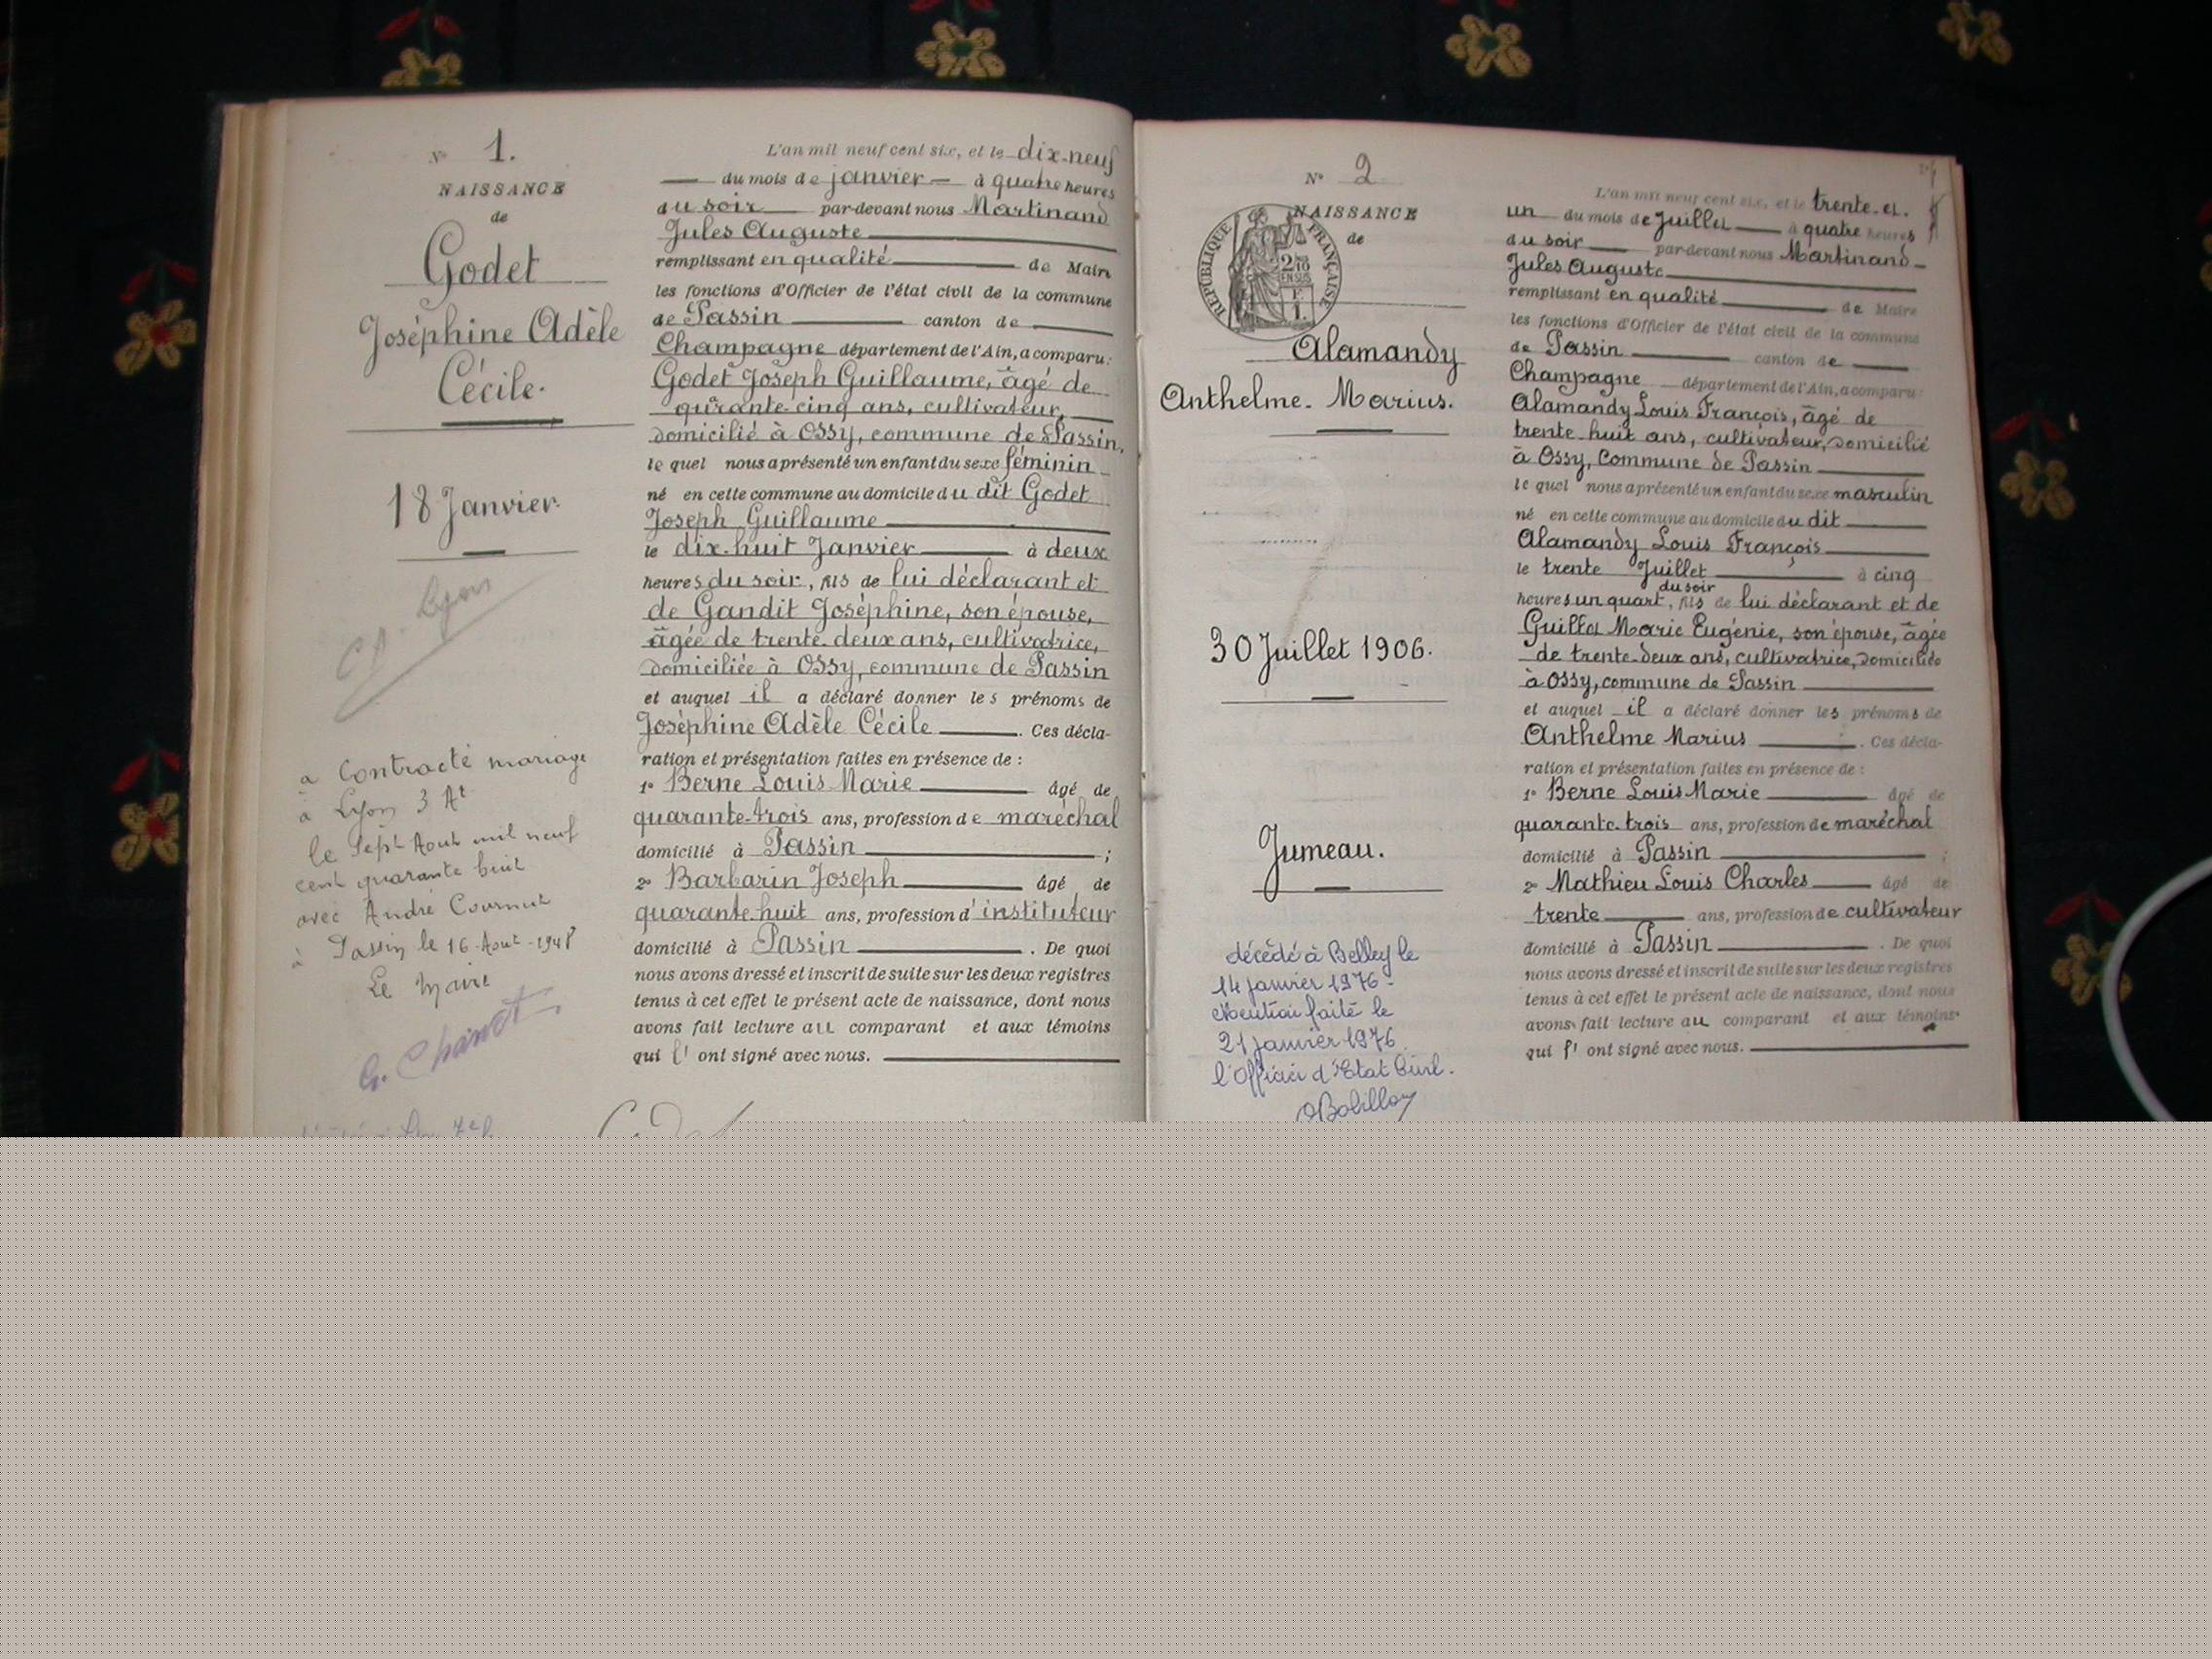 N° 1.
NAISSANCE
de
Godet
Joséphine Adèle
Cécile.
18 Janvier.
Lyon
a Contracté mariage
à Lyon 3 At
le Sept Aout mil neuf
cent quarante huit
avec André Cournut
à Passin le 16 Aout 1948
Le Maire
G. Chanet
L'an mil neuf cent six, et le dix-neuf
du mois de janvier à quatre heures
du soir par-devant nous Martinand
Jules Auguste
remplissant en qualité de Maire
les fonctions d'Officier de l'état civil de la commune
de Passin canton de
Champagne département de l'Ain, a comparu:
Godet Joseph Guillaume, âgé de
qurante-cinq ans, cultivateur,
domicilié à Ossy, commune de Passin,
le quel nous a présenté un enfant du sexe féminin
né en cette commune au domicile du dit Godet
Joseph Guillaume
le dix-huit Janvier à deux
heures du soir, fils de lui déclarant et
de Gandit Joséphine, son épouse,
âgée de trente-deux ans, cultivatrice,
domiciliée à Ossy, commune de Passin
et auquel il a déclaré donner les prénoms de
Joséphine Adèle Cécile. Ces décla-
ration et présentation faites en présence de :
1° Berne Louis Marie âgé de
quarante-trois ans, profession de maréchal
domicilié à Passin ;
2° Barbarin Joseph âgé de
quarante-huit ans, profession d'instituteur
domicilié à Passin. De quoi
nous avons dressé et inscrit de suite sur les deux registres
tenus à cet effet le présent acte de naissance, dont nous
avons fait lecture au comparant et aux témoins
qui l' ont signé avec nous.
N° 2
NAISSANCE
de
RÉPUBLIQUE FRANÇAISE
2/10
EN SUS
Alamandy
Anthelme-Marius.
30 Juillet 1906.
Jumeau.
décédé à Belley le
14 janvier 1976-
Mention faite le
21 janvier 1976.
l'Officier d'Etat Civil.
L'an mil neuf cent six, et le trente-et-
un du mois de Juillet à quatre heures
du soir par-devant nous Martinand-
Jules Auguste
remplissant en qualité de Maire
les fonctions d'Officier de l'état civil de la commune
de Passin canton de
Champagne département de l'Ain, a comparu:
Alamandy Louis François, âgé de
trente-huit ans, cultivateur, domicilié
à Ossy, Commune de Passin
le quel nous a présenté un enfant du sexe masculin
né en cette commune au domicile du dit
Alamandy Louis François
le trente Juillet à cinq
du soir
heures un quart, fils de lui déclarant et de
Marie Eugénie, son épouse, âgée
de trente-deux ans, cultivatrice, domiciliée
à Ossy, commune de Passin
et auquel il a déclaré donner les prénoms de
Anthelme Marius. Ces décla-
ration et présentation faites en présence de :
1° Berne Louis Marie âgé de
quarante-trois ans, profession de maréchal
domicilié à Passin ;
2° Mathieu Louis Charles âgé de
trente ans, profession de cultivateur
domicilié à Passin. De quoi
nous avons dressé et inscrit de suite sur les deux registres
tenus à cet effet le présent acte de naissance, dont nous
avons fait lecture au comparant et aux témoins
qui l' ont signé avec nous.